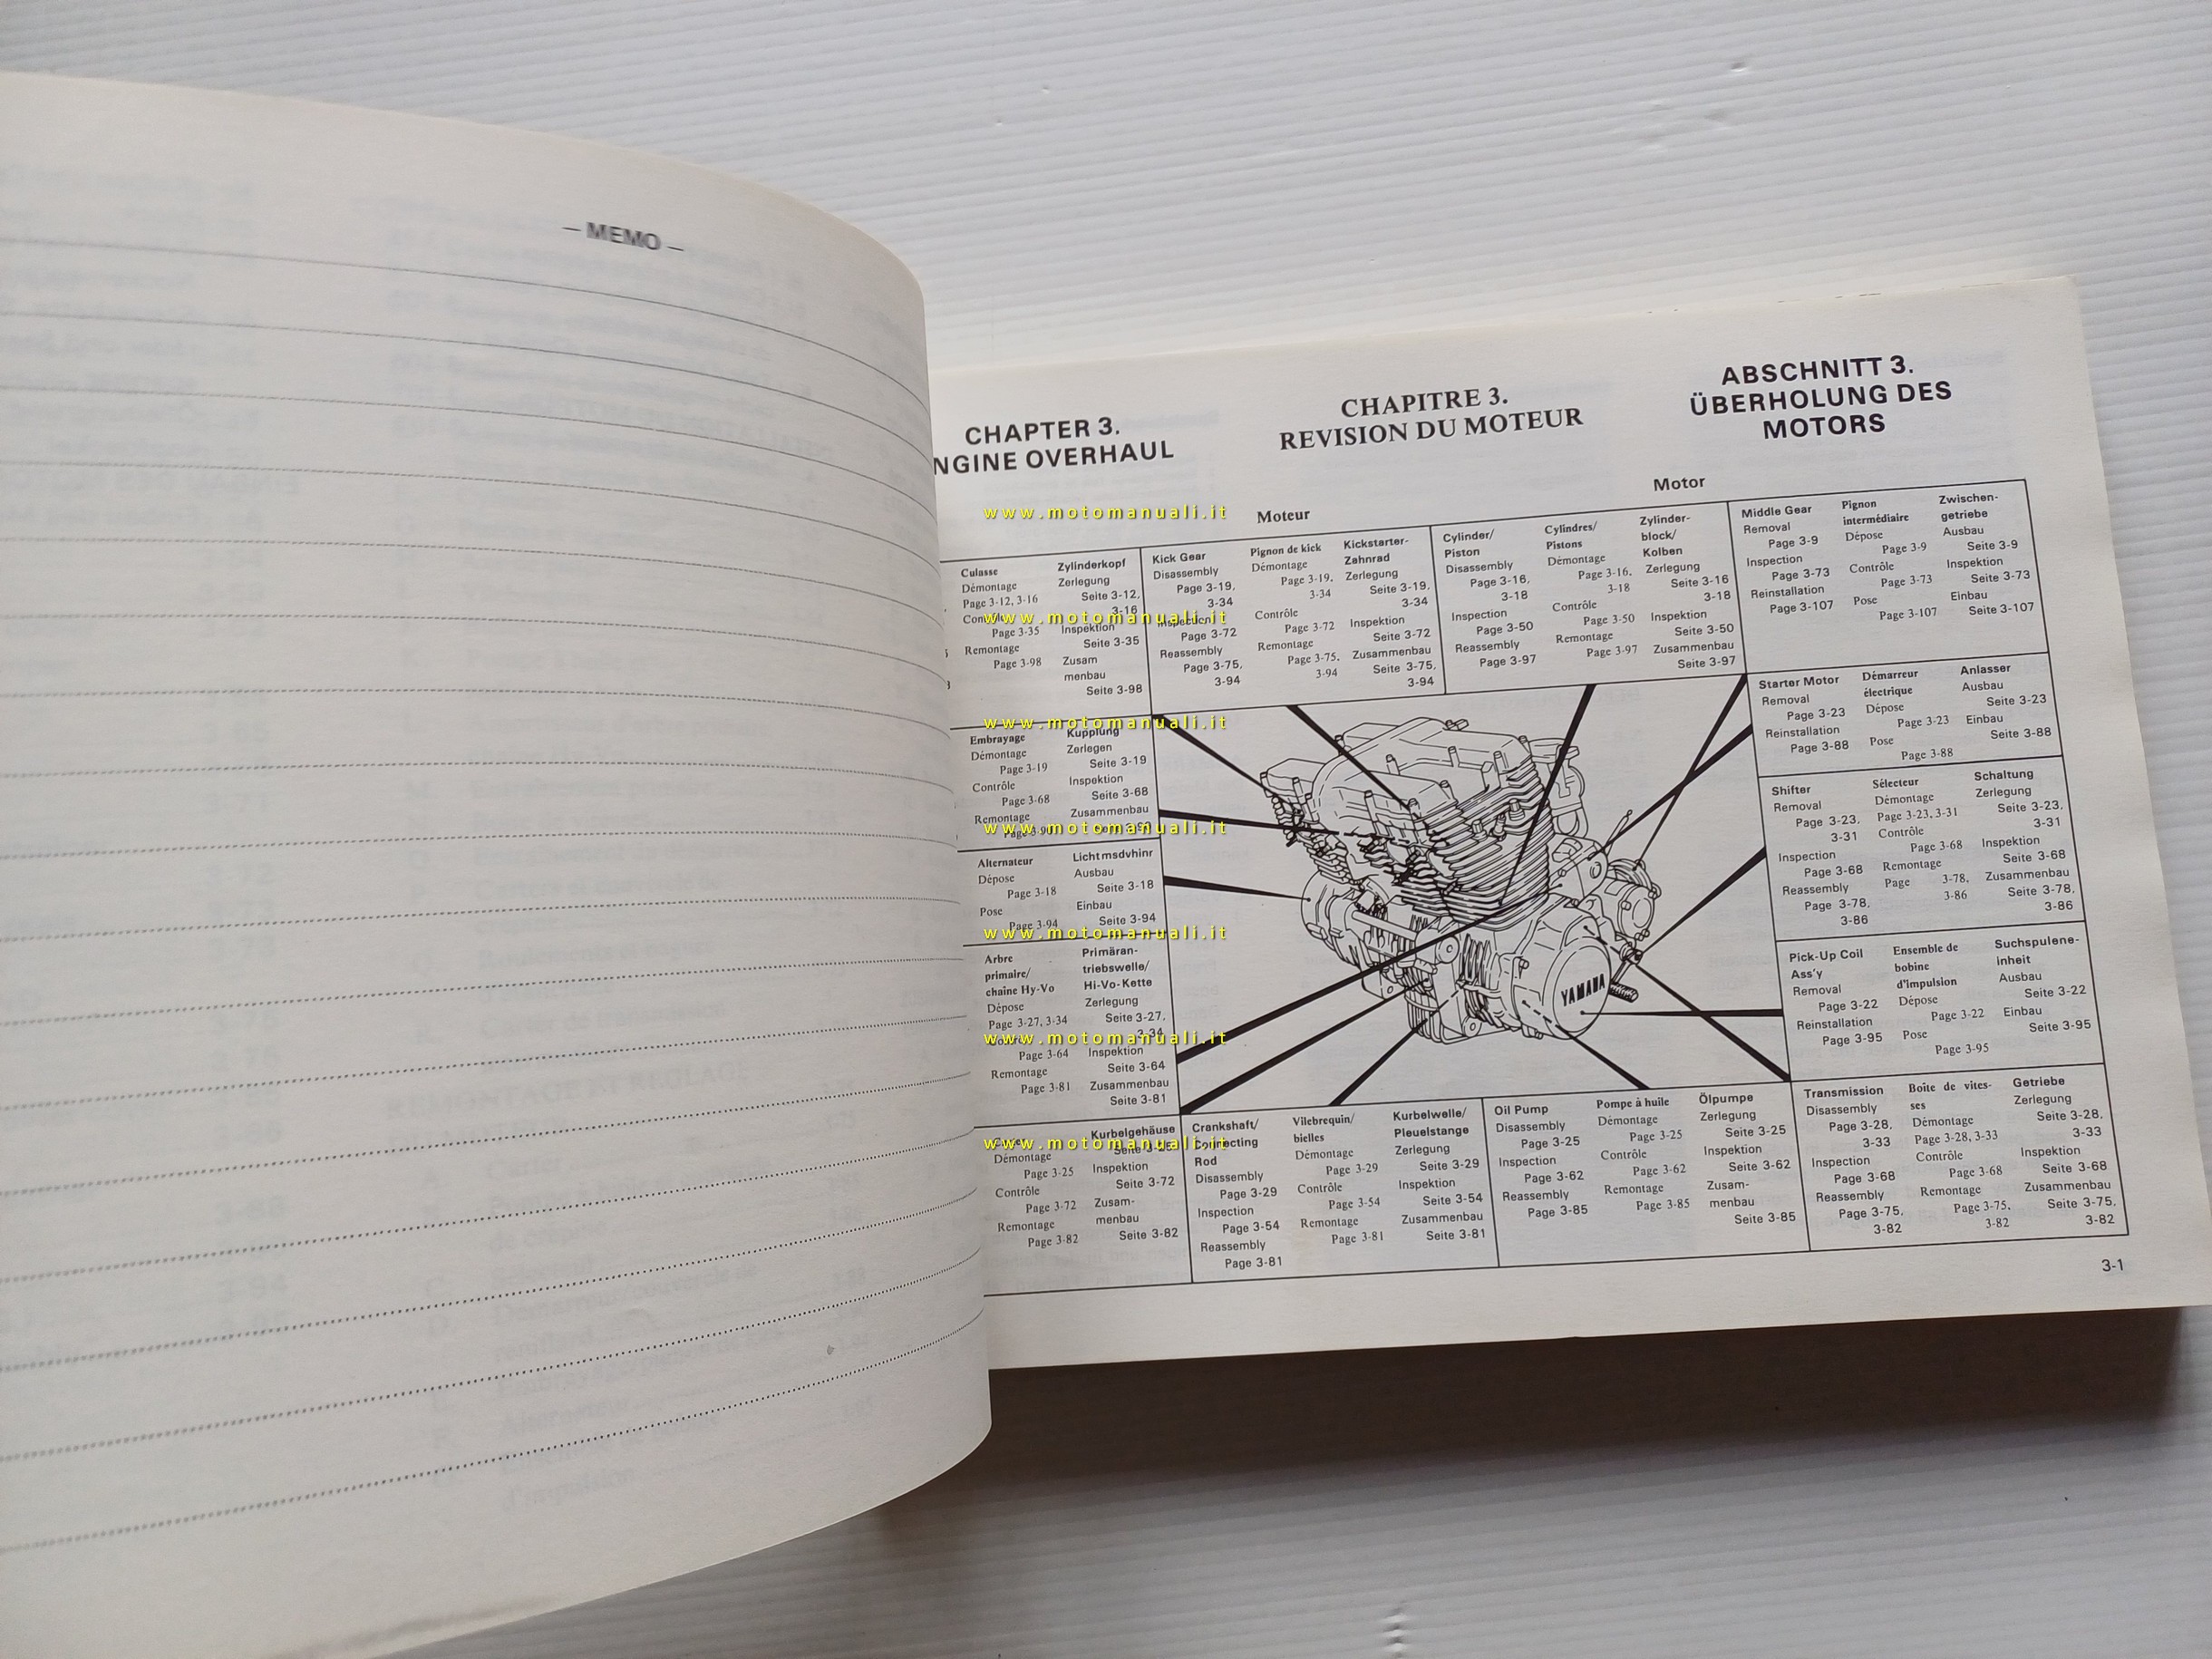 — MEMO —
CHAPTER 3.
NGINE OVERHAUL
CHAPITRE 3.
REVISION DU MOTEUR
ABSCHNITT 3.
ÜBERHOLUNG DES
MOTORS
Moteur
Motor
Culasse
Démontage
Page 3-12, 3-16
Page 3-35
Remontage
Page 3-98
Zylinderkopf
Zerlegung
Seite 3-12,
3-16
Inspektion
Seite 3-35
Zusam
menbau
Seite 3-98
Kick Gear
Disassembly
Page 3-19,
3-34
Inspection
Page 3-72
Reassembly
Page 3-75,
3-94
Pignon de kick
Démontage
Page 3-19,
3-34
Contrôle
Page 3-72
Remontage
Page 3-75,
3-94
Kickstarter-
Zahnrad
Zerlegung
Seite 3-19,
3-34
Inspektion
Seite 3-72
Zusammenbau
Seite 3-75,
3-94
Cylinder/
Piston
Disassembly
Page 3-16,
3-18
Inspection
Page 3-50
Reassembly
Page 3-97
Cylindres/
Pistons
Démontage
Page 3-16,
3-18
Contrôle
Page 3-50
Remontage
Page 3-97
Zylinder-
block/
Kolben
Zerlegung
Seite 3-16
3-18
Inspektion
Seite 3-50
Zusammenbau
Seite 3-97
Middle Gear
Removal
Page 3-9
Inspection
Page 3-73
Reinstallation
Page 3-107
Pignon
intermédiaire
Dépose
Page 3-9
Contrôle
Page 3-73
Pose
Page 3-107
Zwischen-
getriebe
Ausbau
Seite 3-9
Inspektion
Seite 3-73
Einbau
Seite 3-107
Embrayage
Démontage
Page 3-19
Contrôle
Page 3-68
Remontage
Page 3-90
Kupplung
Zerlegen
Seite 3-19
Inspektion
Seite 3-68
Zusammenbau
Starter Motor
Removal
Page 3-23
Reinstallation
Page 3-88
Démarreur
électrique
Dépose
Page 3-23
Pose
Page 3-88
Anlasser
Ausbau
Seite 3-23
Einbau
Seite 3-88
Alternateur
Dépose
Page 3-18
Pose
Page 3-94
Lichtmsdvhinr
Ausbau
Seite 3-18
Einbau
Seite 3-94
Shifter
Removal
Page 3-23,
3-31
Inspection
Page 3-68
Reassembly
Page 3-78,
3-86
Sélecteur
Démontage
Page 3-23, 3-31
Contrôle
Page 3-68
Remontage
Page 3-78,
3-86
Schaltung
Zerlegung
Seite 3-23,
3-31
Inspektion
Seite 3-68
Zusammenbau
Seite 3-78,
3-86
Arbre
primaire/
chaîne Hy-Vo
Dépose
Page 3-27, 3-34
Page 3-64
Remontage
Page 3-81
Primäran-
triebswelle/
Hi-Vo-Kette
Zerlegung
Seite 3-27,
3-34
Inspektion
Seite 3-64
Zusammenbau
Seite 3-81
YAMAHA
Pick-Up Coil
Ass'y
Removal
Page 3-22
Reinstallation
Page 3-95
Ensemble de
bobine
d'impulsion
Dépose
Page 3-22
Pose
Page 3-95
Suchspulene-
inheit
Ausbau
Seite 3-22
Einbau
Seite 3-95
Démontage
Page 3-25
Contrôle
Page 3-72
Remontage
Page 3-82
Kurbelgehäuse
Inspektion
Seite 3-72
Zusam-
menbau
Seite 3-82
Crankshaft/
Connecting
Rod
Disassembly
Page 3-29
Inspection
Page 3-54
Reassembly
Page 3-81
Vilebrequin/
bielles
Démontage
Page 3-29
Contrôle
Page 3-54
Remontage
Page 3-81
Kurbelwelle/
Pleuelstange
Zerlegung
Seite 3-29
Inspektion
Seite 3-54
Zusammenbau
Seite 3-81
Oil Pump
Disassembly
Page 3-25
Inspection
Page 3-62
Reassembly
Page 3-85
Pompe à huile
Démontage
Page 3-25
Contrôle
Page 3-62
Remontage
Page 3-85
Ölpumpe
Zerlegung
Seite 3-25
Inspektion
Seite 3-62
Zusam-
menbau
Seite 3-85
Transmission
Disassembly
Page 3-28,
3-33
Inspection
Page 3-68
Reassembly
Page 3-75,
3-82
Boîte de vites-
ses
Démontage
Page 3-28, 3-33
Contrôle
Page 3-68
Remontage
Page 3-75,
3-82
Getriebe
Zerlegung
Seite 3-28,
3-33
Inspektion
Seite 3-68
Zusammenbau
Seite 3-75,
3-82
3-1
www.motomanuali.it
www.motomanuali.it
www.motomanuali.it
www.motomanuali.it
www.motomanuali.it
www.motomanuali.it
www.motomanuali.it